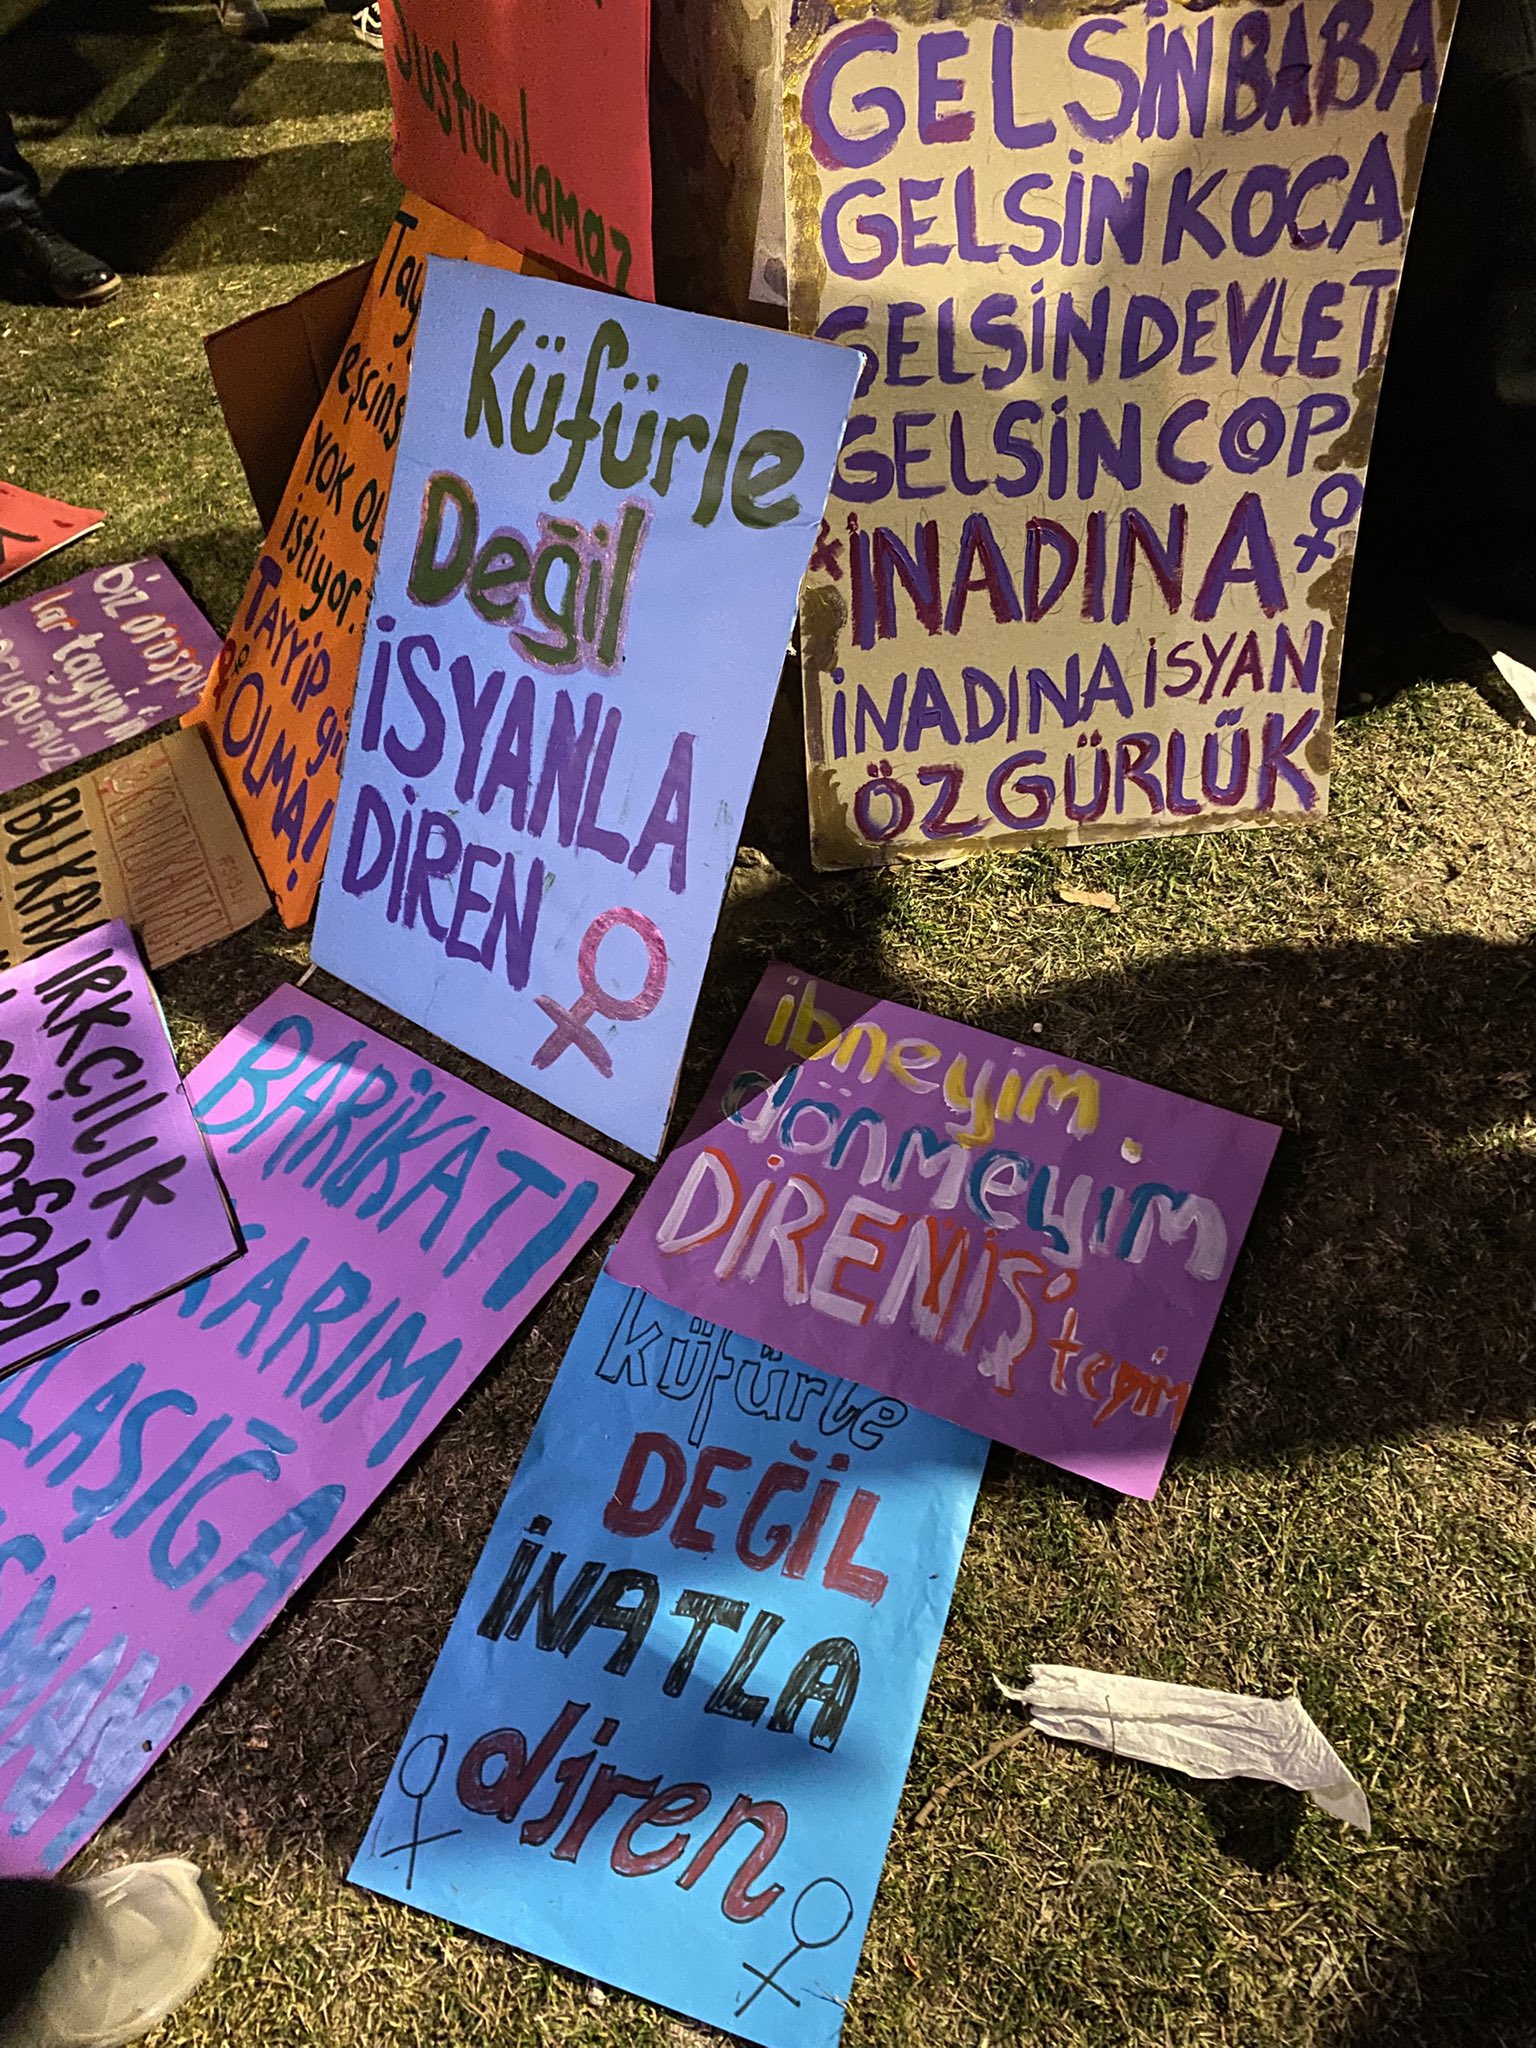 Susturulamaz
GELSİN BABA
GELSİN KOCA
GELSİN DEVLET
GELSİN COP
İNADINA
İNADINA İSYAN
ÖZGÜRLÜK
YOK
istiyor.
TAYYİP
OLMA!
Küfürle
Değil
İSYANLA
DİREN
biz orospu
lar tayyip'in
BU KAV
IRKÇILIK
BARİKATI
ibneyim
dönmeyim
DİRENİŞ'teyim
küfürle
DEĞİL
İNATLA
diren